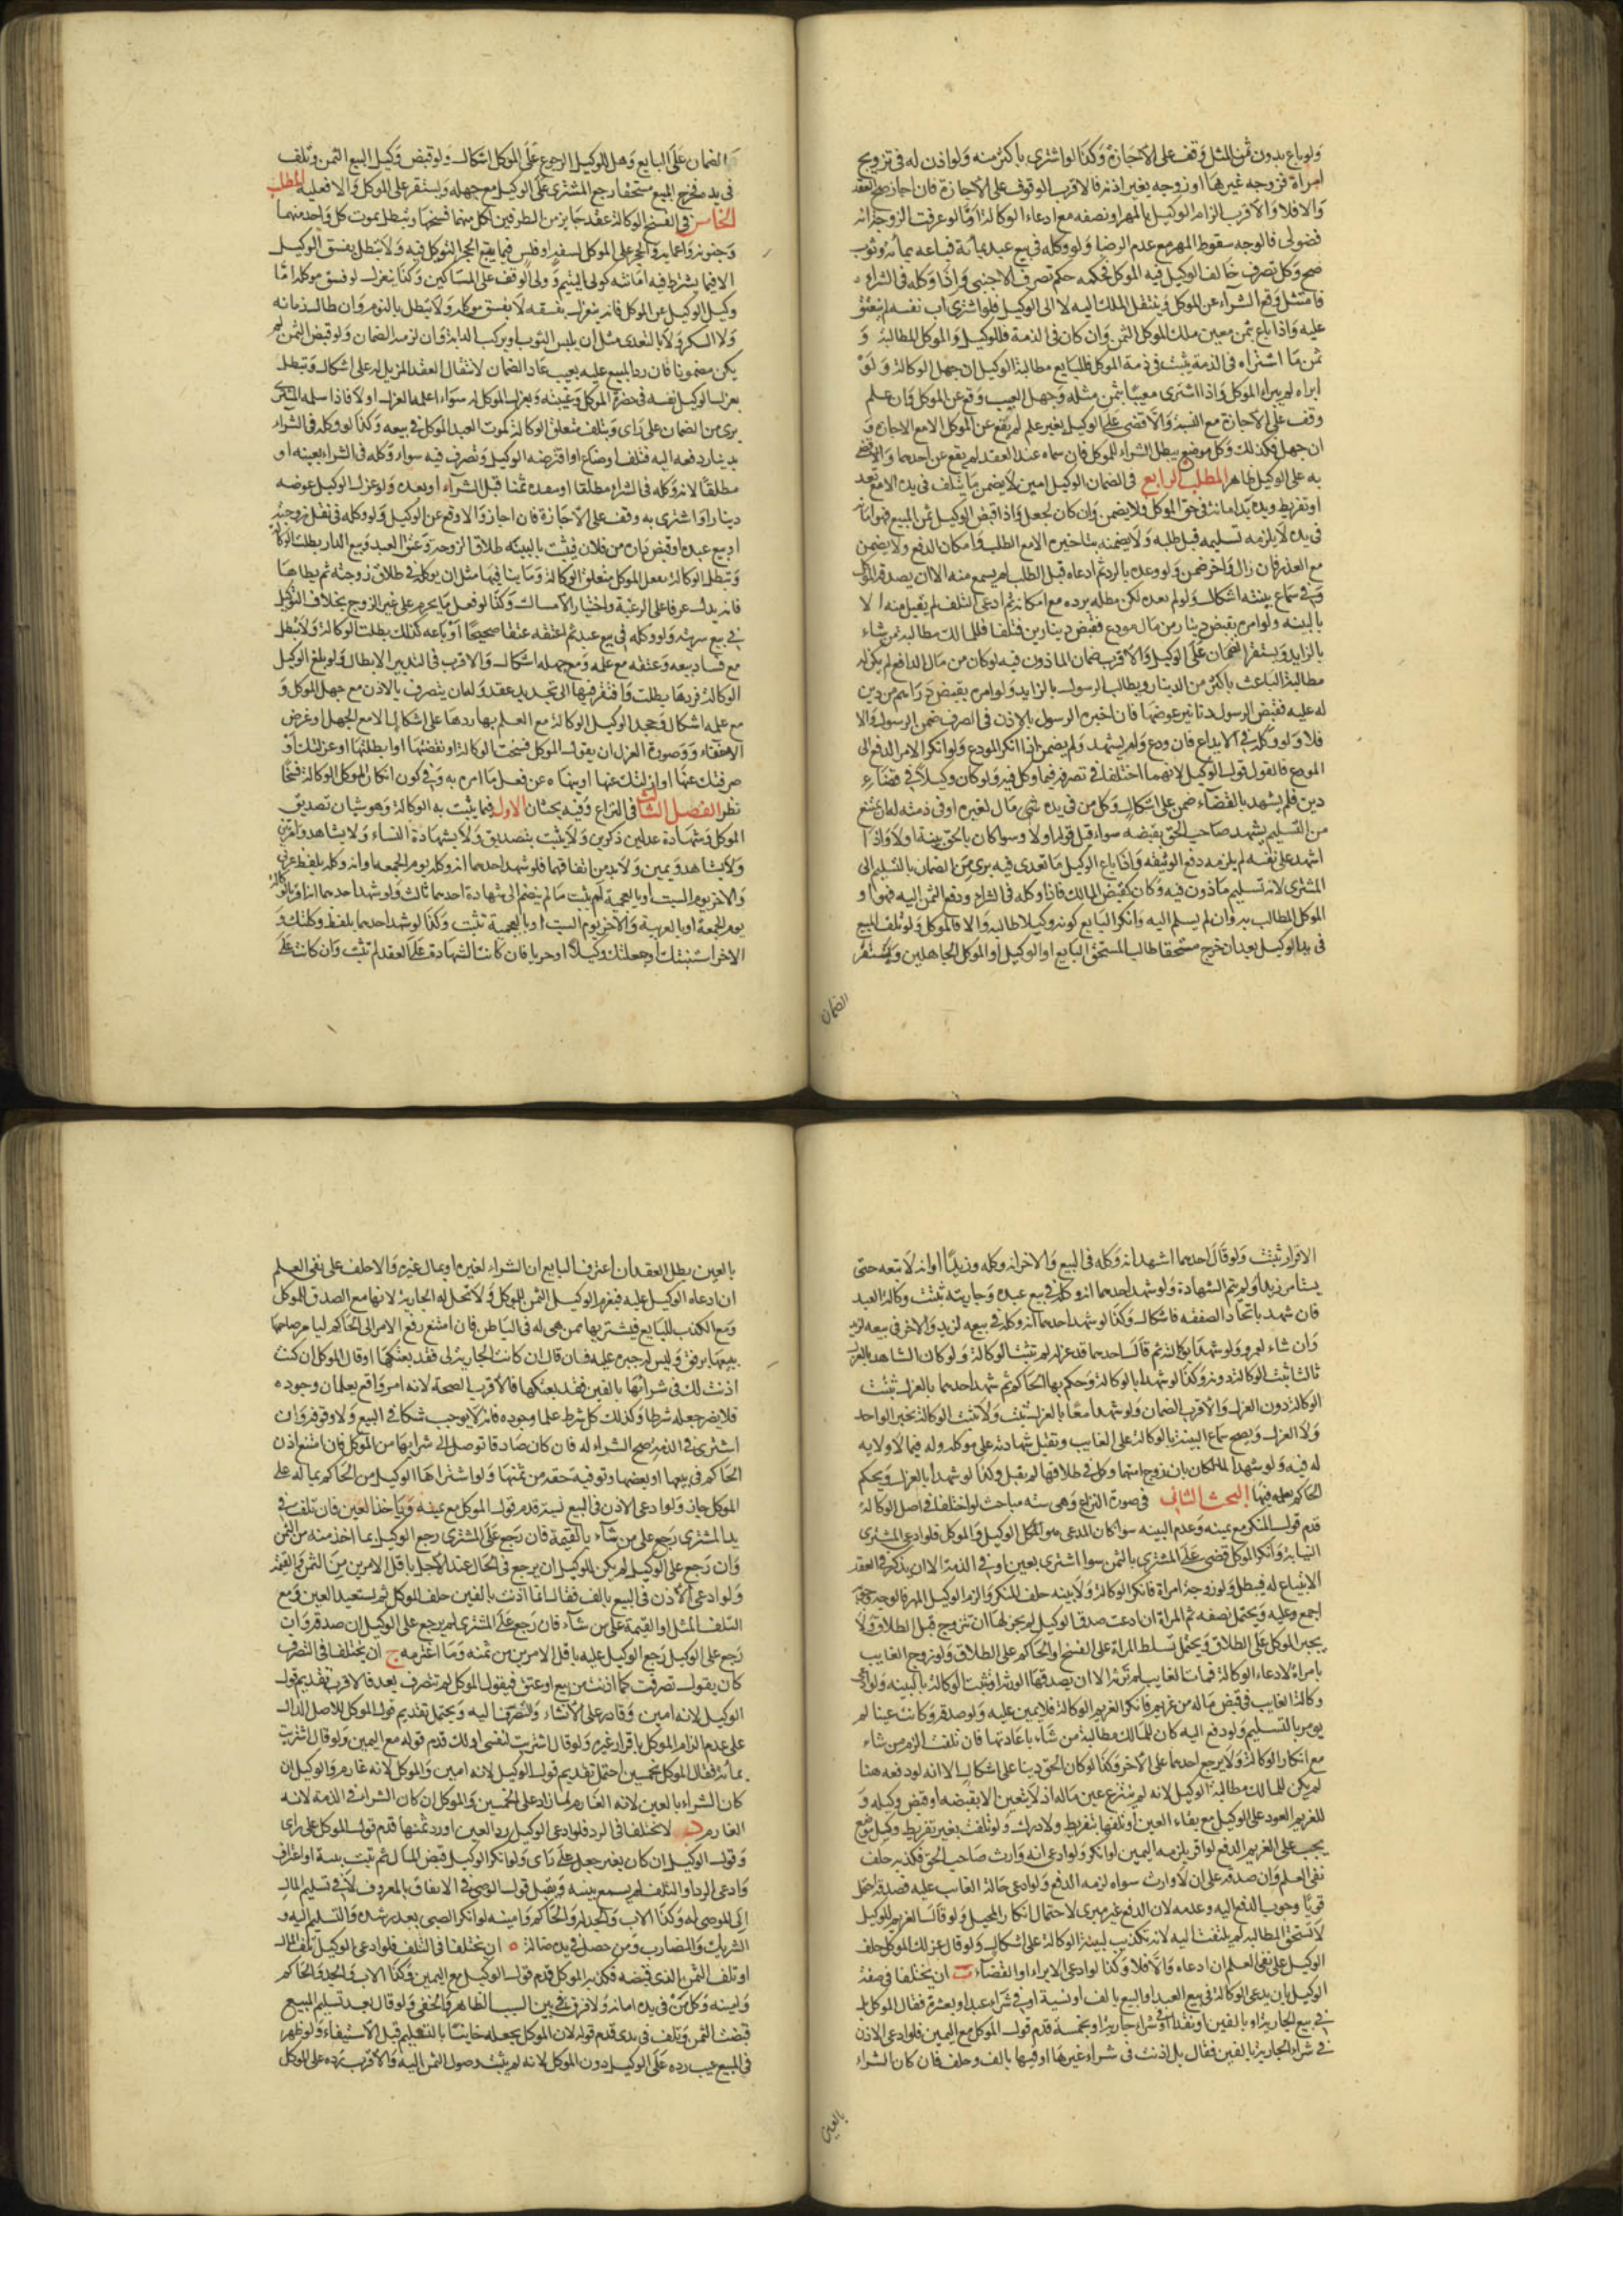 ولو باع بدون ثمن المثل وقف على الاجازة وكذا لو اشترى باكثر منه ولو اذن له فى تزويج
امراة فزوجه غيرها او زوجه بغير اذنه فالاقرب الوقوف على الاجازة فان اجاز صح العقد
والا فلا والاقرب الزام الوكيل بالمهر او نصفه مع ادعاء الوكالة اما لو عرفت الزوجة انه
فضولى فالوجه سقوط المهر مع عدم الرضا ولو وكله فى بيع عبد بمائة فباعه بمائة وثوب
صح وكل تصرف خالف الوكيل فيه الموكل فحكمه حكم تصرف الاجنبى واذا وكله فى الشراء
فامتثل وقع الشراء عن الموكل وينتقل الملك اليه لا الى الوكيل فلو اشترى اب نفسه لم ينعتق
عليه واذا باع بثمن معين ملك الموكل الثمن وان كان فى الذمة فللوكيل والموكل المطالبة و
ثمن ما اشتراه فى الذمة يثبت فى ذمة الموكل فللبايع مطالبة الوكيل ان جهل الوكالة ولو
ابراه لم يبراء الموكل واذا اشترى معيبا بثمن مثله وجهل العيب وقع عن الموكل وان علم
وقف على الاجازة مع النسبة والا قضى على الوكيل بغير علم لم يقع عن الموكل الا مع الاجازة و
ان جهل فكذلك وكل موضع يبطل الشراء للموكل فان سماه عند العقد لم يقع عن احدهما والا قضى
به على الوكيل ظاهرا المطلب الرابع فى الضمان الوكيل امين لا يضمن ما يتلف فى يده الا مع تعد
او تفريط ويده يد امانة فى حق الموكل فلا يضمن وان كان بجعل واذا قبض الوكيل ثمن المبيع فهو امانة
فى يده لا يلزمه تسليمه قبل طلبه ولا يضمنه بتاخيره الا مع الطلب وامكان الدفع ولا يضمن
مع العذر فان زال واخر ضمن ولو وعده بالرد ثم ادعاه قبل الطلب لم يسمع منه الا ان يصدقه الموكل
وفى سماع بينته اشكال ولو لم يعده لكن مطله برده مع امكانه ثم ادعى التلف لم يقبل منه الا
بالبينة ولو امره بقبض دينار من مال مودع فقبض دينارين فتلفا فللمالك مطالبة من شاء
بالزايد ويستقر الضمان على الوكيل والاقرب ضمان الماذون فيه لو كان من مال الدافع لم يكن له
مطالبة الباعث باكثر من الدينار ويطالب الرسول بالزايد ولو امره بقبض دراهم من دين
له عليه فقبض الرسول دنانير عوضها فان اخبره الرسول بالاذن فى الصرف ضمن الرسول والا
فلا ولو وكله فى الايداع فان ودع ولم يشهد ولم يضمن اذا انكر المودع ولو انكر الامر الدفع الى
المودع فالقول قول الوكيل لانهما اختلفا فى تصرفه فيما وكل فيه ولو كان وكيلا فى قضاء
دين فلم يشهد بالقضاء ضمن على اشكال وكل من فى يده شى مال لغيره او فى ذمته له ان يمتنع
من التسليم ليشهد صاحب الحق بقبضه سواء قبل قوله او لا وسوا كان بالحق بينة او لا واذا
اشهد على نفسه لم يلزمه دفع الوثيقه واذا باع الوكيل ما تعدى فيه برى من الضمان بالتسليم الى
المشترى لانه تسليم ماذون فيه وكان كقبض المالك فاذا وكله فى الشراء ودفع الثمن اليه فهو او
الموكل المطالب به وان لم يسلم اليه وانكر البايع كونه وكيلا طالبه والا فالموكل ولو تلف المبيع
فى يد الوكيل بعد ان خرج مستحقا طالب المستحق البايع او الوكيل او الموكل الجاهلين ويستقر
الضمان
الضمان على البايع وهل للوكيل الرجوع على الموكل اشكال ولو قبض وكيل البيع الثمن وتلف
فى يده فخرج المبيع مستحقا رجع المشترى على الوكيل مع جهله ويستقر على الموكل والا فعليه المطلب
الخامس فى الفسخ الوكالة عقد جايز من الطرفين لكل منهما فسخها وتبطل بموت كل واحد منهما
وجنونه واغمايه والحجر على الموكل لسفه او فلس فيما يمنع الحجر التوكيل فيه ولا تبطل بفسق الوكيل
الا فيما يشترط فيه امانته كولى اليتيم وولى الوقف على المساكين وكذا ينعزل لو فسق موكله اما
وكيل الوكيل عن الموكل فانه ينعزل بفسقه لا بفسق موكله ولا تبطل بالنوم وان طال زمانه
ولا السكر ولا بالتعدى مثل ان يلبس الثوب او يركب الدابة وان لزمه الضمان ولو قبض الثمن لم
يكن مضمونا فان رد المبيع عليه بعيب عاد الضمان لانتقال العقد المزيل له على اشكال وتبطل
بعزل الوكيل نفسه فى حضرة الموكل وغيبته وبعزل الموكل له سواء اعلمه العزل او لا فاذا سلمه المشترى
برى من الضمان على راى وبتلف متعلق الوكالة كموت العبد الموكل فى بيعه وكذا لو وكله فى الشراء
بدينار دفعه اليه فتلف او ضاع او اقترضه الوكيل وتصرف فيه سواء وكله فى الشراء بعينه او
مطلقا لانه وكله فى الشراء مطلقا وينقده ثمنا قبل الشراء او بعده ولو عزل الوكيل عوضه
دينارا واشترى به وقف على الاجازة فان اجاز والا وقع عن الوكيل ولو وكله فى نقل زوجته
او بيع عبده او قبض داره من فلان فثبت بالبينه طلاق الزوجه وعتق العبد وبيع الدار بطلت الوكالة
وتبطل الوكالة بفعل الموكل متعلق الوكالة وما ينافيها مثل ان يوكله فى طلاق زوجته ثم يطاها
فانه يدل عرفا على الرغبة واختيار الامساك وكذا لو فعل ما يحرم على غير الزوج بخلاف التوكيل
فى بيع سريته ولو وكله فى بيع عبد ثم اعتقه عتقا صحيحا او باعه كذلك بطلت الوكالة ولا تبطل
مع فساد بيعه وعتقه مع علمه ومع جهله اشكال والاقرب فى التدبير الابطال ولو بلغ الوكيل
الوكالة فردها بطلت وافتقر فيها الى تجديد عقد وله ان يتصرف بالاذن مع جهل الموكل و
مع علمه اشكال وجحد الوكيل الوكالة مع العلم بها ردها على اشكال الا مع الجهل او غرض
الاختفاء وصورة العزل ان يقول الموكل فسخت الوكالة او نقضتها او ابطلتها او عزلتك او
صرفتك عنها او ازلتك عنها او ينهاه عن فعل ما امره به وفى كون انكار الموكل الوكالة فسخا
نظر الفصل الثالث فى النزاع وفيه بحثان الاول فيما يثبت به الوكالة وهو شيان تصديق
الموكل وشهادة عدلين ذكرين ولا يثبت بتصديق ولا بشهادة النساء ولا بشاهد وامراتين
ولا بشاهد ويمين ولا بد من اتفاقهما فلو شهد احدهما انه وكله يوم الجمعه او انه وكله بلفظ عربى
والاخر يوم السبت او بالعجمية لم يثبت ما لم ينضم الى شهادة احدهما ثالث ولو شهد احدهما انه اقر بالوكالة
يوم الجمعة او بالعربية والاخر يوم السبت او بالعجمية تثبت وكذا لو شهد احدهما بلفظ وكلتك و
الاخر استنبتك او جعلتك وكيلا او جريا فان كانت الشهادة على العقد لم تثبت وان كانت على
الاقرار ثبتت ولو قال احدهما اشهد انه وكله فى البيع والاخر انه وكله وزيدا او انه لا تبعه حتى
يستامر زيدا ولم يتم الشهادة ولو شهد احدهما انه وكله فى بيع عبده وجاريته ثبتت وكالة العبد
فان شهد باتحاد الصفقه فاشكال وكذا لو شهد احدهما انه وكله فى بيعه لزيد والاخر فى بيعه لزيد
وان شاء لعمرو ولو شهدا بوكالته ثم قال احدهما قد عزله لم تثبت الوكالة ولو كان الشاهد بالعزل
ثالثا ثبتت الوكالة دونه وكذا لو شهدا بالوكالة وحكم بها الحاكم ثم شهد احدهما بالعزل ثبتت
الوكالة دون العزل والاقرب الضمان ولو شهدا معا بالعزل ثبت ولا تثبت الوكالة بخبر الواحد
ولا العزل ويصح سماع البينة بالوكالة على الغايب وتقبل شهادته على موكله وله فيما لا ولايه
له فيه ولو شهد المالكان بان زوج امتهما وكل فى طلاقها لم يقبل وكذا لو شهدا بالعزل ويحكم
الحاكم بعلمه فيهما البحث الثانى فى صورة النزاع وهى سته مباحث لو اختلفا فى اصل الوكالة
قدم قول المنكر مع يمينه وعدم البينه سوا كان المدعى هو الوكيل او الموكل فلو ادعى المشترى
النيابة وانكر الموكل قضى على المشترى بالثمن سوا اشترى بعين او فى الذمة الا ان يذكر فى العقد
الابتياع له فيبطل ولو زوجه امراة فانكر الوكالة ولا بينه حلف المنكر والزم الوكيل المهر
يجبر الموكل على الطلاق ويحتمل تسلط المراة على الفسخ او الحاكم على الطلاق ولو زوج الغايب
بامراة لادعاء الوكالة فمات الغايب لم ترثه الا ان يصدقها الورثة او تثبت الوكالة بالبينه ولو ادعى
وكالة الغايب فى قبض ماله من غريمه فانكر الغريم الوكالة فلا يمين عليه ولو صدقه وكانت عينا لم
يومر بالتسليم ولو دفع اليه كان للمالك مطالبة من شاء باعادتها فان تلفت الزم من شاء
مع انكار الوكالة ولا يرجع احدهما على الاخر وكذا لو كان الحق دينا على اشكال الا انه لو دفعه هنا
لم يكن للمالك مطالبة الوكيل لانه لم ينتزع عين ماله اذ لا يتعين الا بقبضه او قبض وكيله و
للغريم العود على الوكيل مع بقاء العين او تلفها بتفريط ولا درك ولو تلفت بغير تفريط وكل موضع
يجب على الغريم الدفع لو اقر يلزمه اليمين لو انكر ولو ادعى انه وارث صاحب الحق فكذبه حلف
نفى العلم وان صدقه على ان لا وارث سواه لزمه الدفع ولو ادعى حالة الغايب عليه فصدقه احتمل
قويا وجوب الدفع اليه وعدمه لان الدفع غير مبرى لاحتمال انكار المحيل ولو قال الغريم للوكيل
لا تستحق المطالبه لم يلتفت اليه لانه تكذيب لبينة الوكالة على اشكال ولو قال عزلك الموكل حلف
الوكيل على نفى العلم ان ادعاه والا فلا وكذا لو ادعى الابراء او القضاء ب ان يختلفا فى صفة
الوكيل بان يدعى الوكالة فى بيع العبد او البيع بالف او نسية او فى شراء عبد او بعشرة فقال الموكل بل
فى بيع الجارية او بالفين او نقدا او فى شراء جارية او بخمسة قدم قول الموكل مع اليمين فلو ادعى الاذن
فى شراء الجارية بالفين فقال بل اذنت فى شراء غيرها او فيها بالف وحلف فان كان الشراء
بالعين
بالعين بطل العقد ان اعترف البايع ان الشراء لغيره او بمال غيره والا حلف على نفى العلم
ان ادعاه الوكيل عليه فيغرم الوكيل الثمن للموكل ولا تحل له الجارية لانها مع الصدق للموكل
ومع الكذب للبايع فيشتريها ممن هى له فى الباطن فان امتنع رفع الامر الى الحاكم ليامر صاحبها
ببيعها برفق وليس له جبره عليه فان قال ان كانت الجارية لى فقد بعتكها او قال الموكل ان كنت
اذنت لك فى شرائها بالفين فقد بعتكها فالاقرب الصحة لانه امر واقع يعلمان وجوده
فلا يضر جعله شرطا وكذلك كل شرط علما وجوده فانه لا يوجب شكا فى البيع ولا وقوفه وان
اشترى فى الذمة صح الشراء له فان كان صادقا توصل الى شرايها من الموكل فان امتنع اذن
الحاكم فى بيعها او بعضها وتوفية حقه من ثمنها ولو اشتراها الوكيل من الحاكم بماله على
الموكل جاز ولو ادعى الاذن فى البيع نسية قدم قول الموكل مع يمينه وياخذ العين فان تلفت فى
يد المشترى رجع على من شاء بالقيمة فان رجع على المشترى رجع الوكيل بما اخذ منه من الثمن
وان رجع على الوكيل لم يكن للوكيل ان يرجع فى الحال عند الاجل باقل الامرين من الثمن والقيمة
ولو ادعى الاذن فى البيع بالف فقال انما اذنت بالفين حلف الموكل ثم يستعيد العين ومع
التلف المثل او القيمة على من شاء فان رجع على المشترى لم يرجع على الوكيل ان صدقه وان
رجع على الوكيل رجع الوكيل عليه باقل الامرين من ثمنه وما اغترمه ج ان يختلفا فى التصرف
كان يقول تصرفت كما اذنت من بيع او عتق فيقول الموكل لم تتصرف بعد فالاقرب تقديم قول
الوكيل لانه امين وقادر على الانشاء والتصرف اليه ويحتمل تقديم قول الموكل للاصل الدال
على عدم الزام الموكل باقرار غيره ولو قال اشتريت لنفسى او لك قدم قوله مع اليمين ولو قال اشتريت
بمائة فقال الموكل بخمسين احتمل تقديم قول الوكيل لانه امين والموكل لانه غارم والوكيل ان
كان الشراء بالعين لانه الغارم لما زاد على الخمسين والموكل ان كان الشراء فى الذمة لانه
الغارم د لا يختلفا فى الرد فلو ادعى الوكيل رد العين او رد ثمنها قدم قول الموكل على راى
وقول الوكيل ان كان بغير جعل على راى ولو انكر الوكيل قبض المال ثم ثبت ببينة او اعترف
وادعى الرد او التلف لم يسمع بينته ويقبل قول الوصى فى الانفاق بالمعروف لا فى تسليم المال
الى الموصى له وكذا الاب والجد له والحاكم وامينه لو انكر الصبى بعد رشده والتسليم اليه و
الشريك والمضارب ومن حصل فى يده ضالة ه ان يختلفا فى التلف فلو ادعى الوكيل تلف المال
او تلف الثمن الذى قبضه فكذبه الموكل قدم قول الوكيل مع اليمين وكذا الاب والجد والحاكم
وامينه وكل من فى يده امانة ولا فرق بين السبب الظاهر والخفى ولو قال بعد تسليم المبيع
قبضت الثمن وتلف فى يدى قدم قوله لان الموكل يجعله خاينا بالتسليم قبل الاستيفاء ولو ظهر
فى المبيع عيب رده على الوكيل دون الموكل لانه لم يثبت وصول الثمن اليه والاقرب رده على الموكل